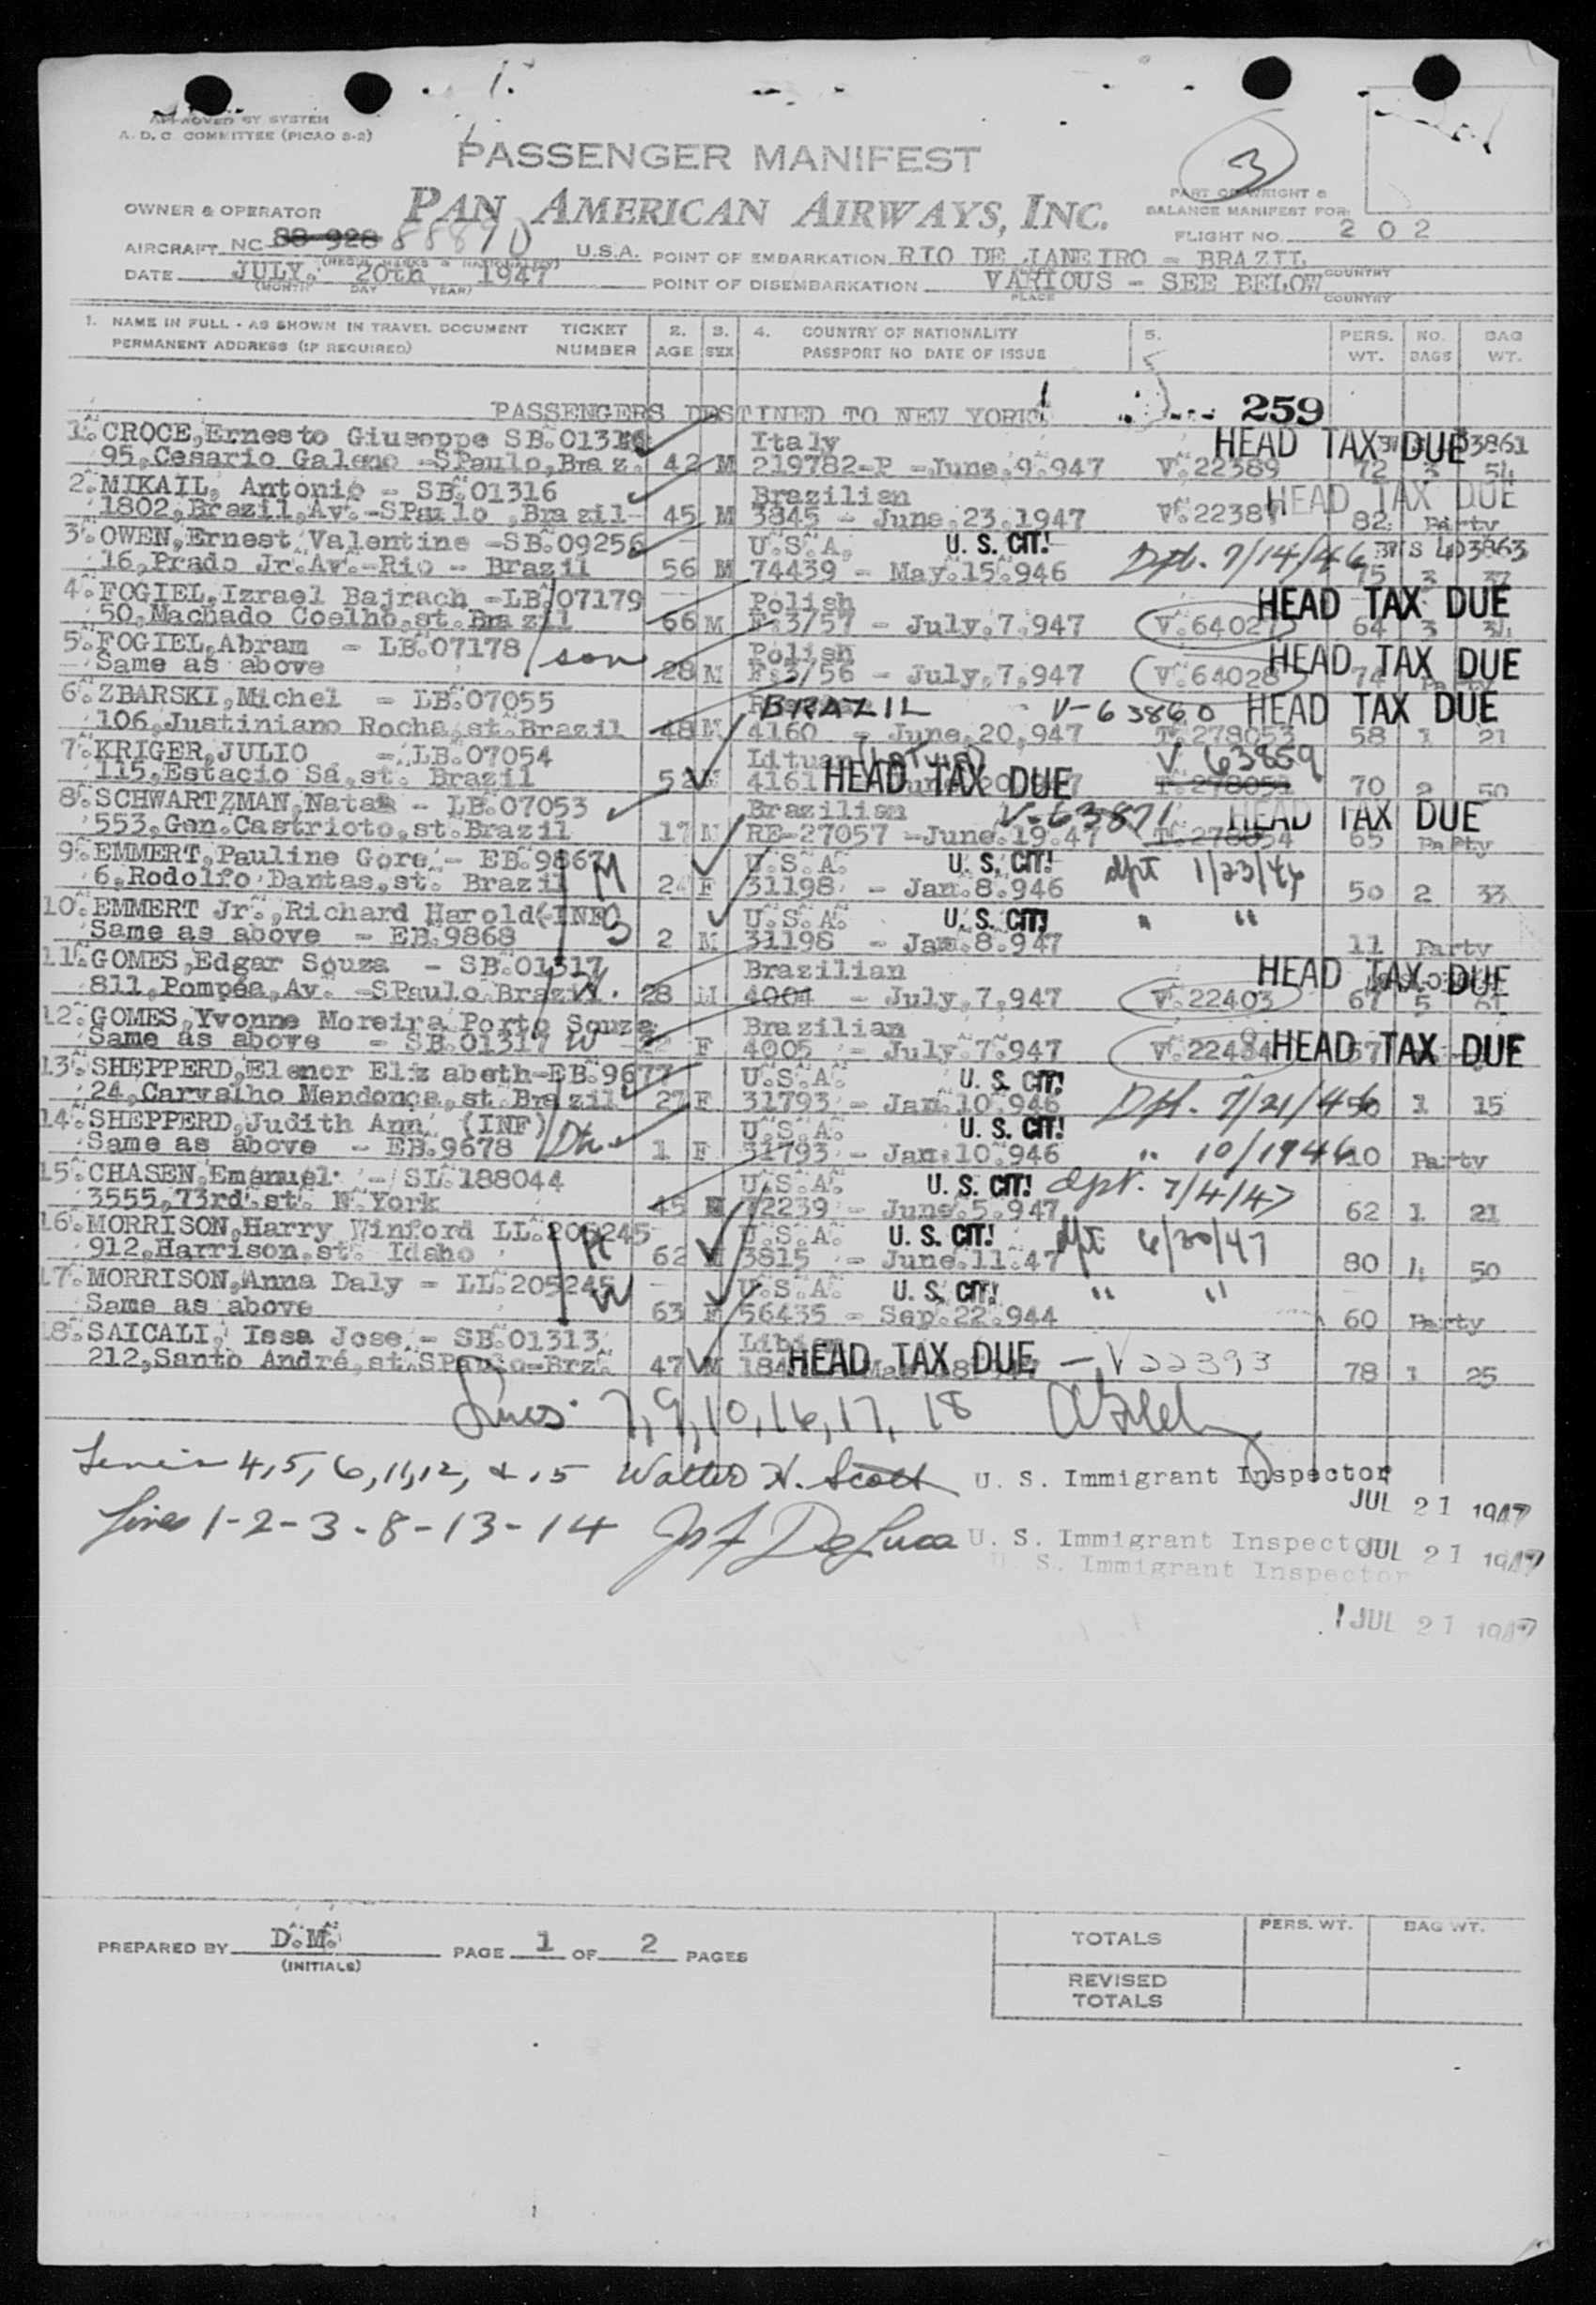 APPROVED BY SYSTEM
A. D. C. COMMITTEE (PICAO S-2)
PASSENGER MANIFEST
3
PAN AMERICAN AIRWAYS, INC.
PART OF WEIGHT &
BALANCE MANIFEST FOR:
OWNER & OPERATOR
FLIGHT NO. 202
AIRCRAFT NC 88 928 88890 U.S.A. POINT OF EMBARKATION RIO DE JANEIRO - BRAZIL
COUNTRY
DATE JULY. 20th 1947 POINT OF DISEMBARKATION VARIOUS - SEE BELOW
(MONTH) DAY YEAR) PLACE COUNTRY
1. NAME IN FULL - AS SHOWN IN TRAVEL DOCUMENT TICKET 2. 3. 4. COUNTRY OF NATIONALITY 5. PERS. NO. BAG
PERMANENT ADDRESS (IF REQUIRED) NUMBER AGE SEX PASSPORT NO DATE OF ISSUE WT. BAGS WT.
PASSENGERS DESTINED TO NEW YORK 259
1. CROCE, Ernesto Giuseppe SB. Italy HEAD TAX DUE
95, Cesario Galeno -SPaulo, Braz. 42 M 219782-P -June.9.947 V.22389 72 3 54
2. MIKAIL, Antonio - SB.01316 Brazilian HEAD TAX DUE
1802, Brazil, Av.-SPaulo, Brazil- 45 M 3845 - June.23.1947 82 Party
3. OWEN, Ernest Valentine -SB.09256 U.S.A. U. S. CIT!
16, Prado Jr. Av.-Rio - Brazil 56 M 74439 - May.15.946 Dpt. 7/14/46 75 3
4. FOGIEL, Izrael Bajrach -LB.07179 Polish HEAD TAX DUE
50, Machado Coelho, st. Brazil 66 M F.3/57 - July.7.947 64 3
5. FOGIEL, Abram - LB.07178 son Polish HEAD TAX DUE
Same as above 28 M F.3/56 - July,7,947 V.64028 74 Party
6. ZBARSKI, Michel - LB.07055 BRAZIL V-63860 HEAD TAX DUE
106, Justiniano Rocha, st. Brazil 48 M 4160 - June,20,947 T.278053 58 1 21
7. KRIGER, JULIO - LB.07054 Lituan (Latvia) V 63859
115, Estacio Sá, st. Brazil 52 M 4161 HEAD TAX DUE 70 2 50
8. SCHWARTZMAN, Natan - LB.07053 Brazilian V-63871 HEAD TAX DUE
553, Gen. Castrioto, st. Brazil 17 M RE-27057 -June.19.47 T.278054 65 Party
9. EMMERT, Pauline Gore - EB.9867 M U.S.A. U. S. CIT!
6, Rodolfo Dantas, st. Brazil F 31198 - Jan.8.946 dpt 1/23/46 50 2 33
10. EMMERT Jr., Richard Harold (INF) S U.S.A. U. S. CIT!
Same as above - EB.9868 2 M 31198 - Jan.8.947 " " 11 Party
11. GOMES, Edgar Souza - SB.01317 Brazilian HEAD TAX DUE
811, Pompéa, Av. -SPaulo Brazil. 28 M 4004 - July,7,947 V.22403 67 5
12. GOMES, Yvonne Moreira Porto Souza Brazilian
Same as above - SB.01317 W F 4005 - July.7.947 HEAD TAX DUE
13. SHEPPERD, Elenor Elizabeth-EB.9677 U.S.A. U. S. CIT!
24, Carvalho Mendonça, st. Brazil 27 F 31793 - Jan.10.946 Dpt. 7/21/46 50 1 15
14. SHEPPERD, Judith Ann (INF) U.S.A. U. S. CIT!
Same as above - EB.9678 1 F 31793 - Jan.10.946 " 10/1946 10 Party
15. CHASEN, Emanuel - SL.188044 U.S.A. U. S. CIT! dpt. 7/4/47
3555, 73rd. st. N.York 45 M 12239 - June.5.947 62 1 21
16. MORRISON, Harry Winford LL.205245 U.S.A. U. S. CIT! dpt 6/30/47
912, Harrison, st. Idaho H 62 M 3815 - June.11.47 80 4 50
17. MORRISON, Anna Daly - LL.205245 W U.S.A. U. S. CIT! " "
Same as above 63 F 56435 - Sep.22.944 60 Party
18. SAICALI, Issa Jose - SB.01313
212, Santo André, st. SPaulo-Brz. 47 M HEAD TAX DUE - V 22393 78 1 25
Lines 7, 9, 10, 16, 17, 18
Lines 4, 5, 6, 11, 12, & 15 Walter H. Scott U. S. Immigrant Inspector
JUL 21 1947
Lines 1-2-3-8-13-14 DeLuca U. S. Immigrant Inspector JUL 21 1947
U. S. Immigrant Inspector
JUL 21 1947
PREPARED BY D.M. PAGE 1 OF 2 PAGES
(INITIALS)
PERS. WT. BAG WT.
TOTALS
REVISED
TOTALS